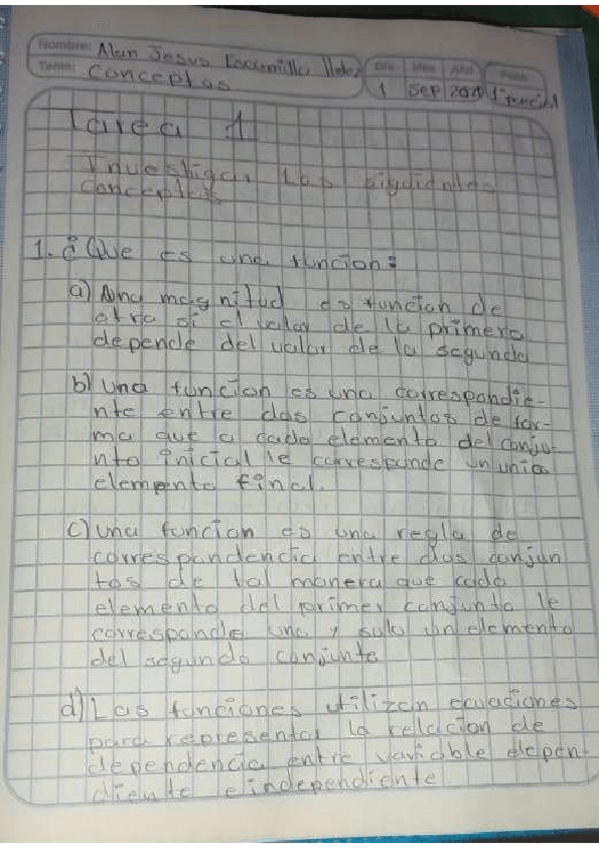 Nombre: Alan Jesus
Tema: Conceptos
Dia Mes Año
1 Sep
Tarea 1
Investigar Los siguientes
conceptos
1. ¿Que es una funcion?
a) Una magnitud es funcian de
otra si el valor de la primera
depende del valor de la segunda
b) una funcion es una correspondie-
nte entre dos conjuntos de for-
ma que a cada elemento del conju-
nto inicial le corresponde un unico
elemento final.
c) una funcion es una regla de
correspondencia entre dos conjun
tos de tal manera que cada
elemento del primer conjunto le
corresponde uno y solo un elemento
del segundo conjunto
d) Las funciones utilizan ecuaciones
para representar la relacion de
dependencia entre variable depen-
diente e independiente.